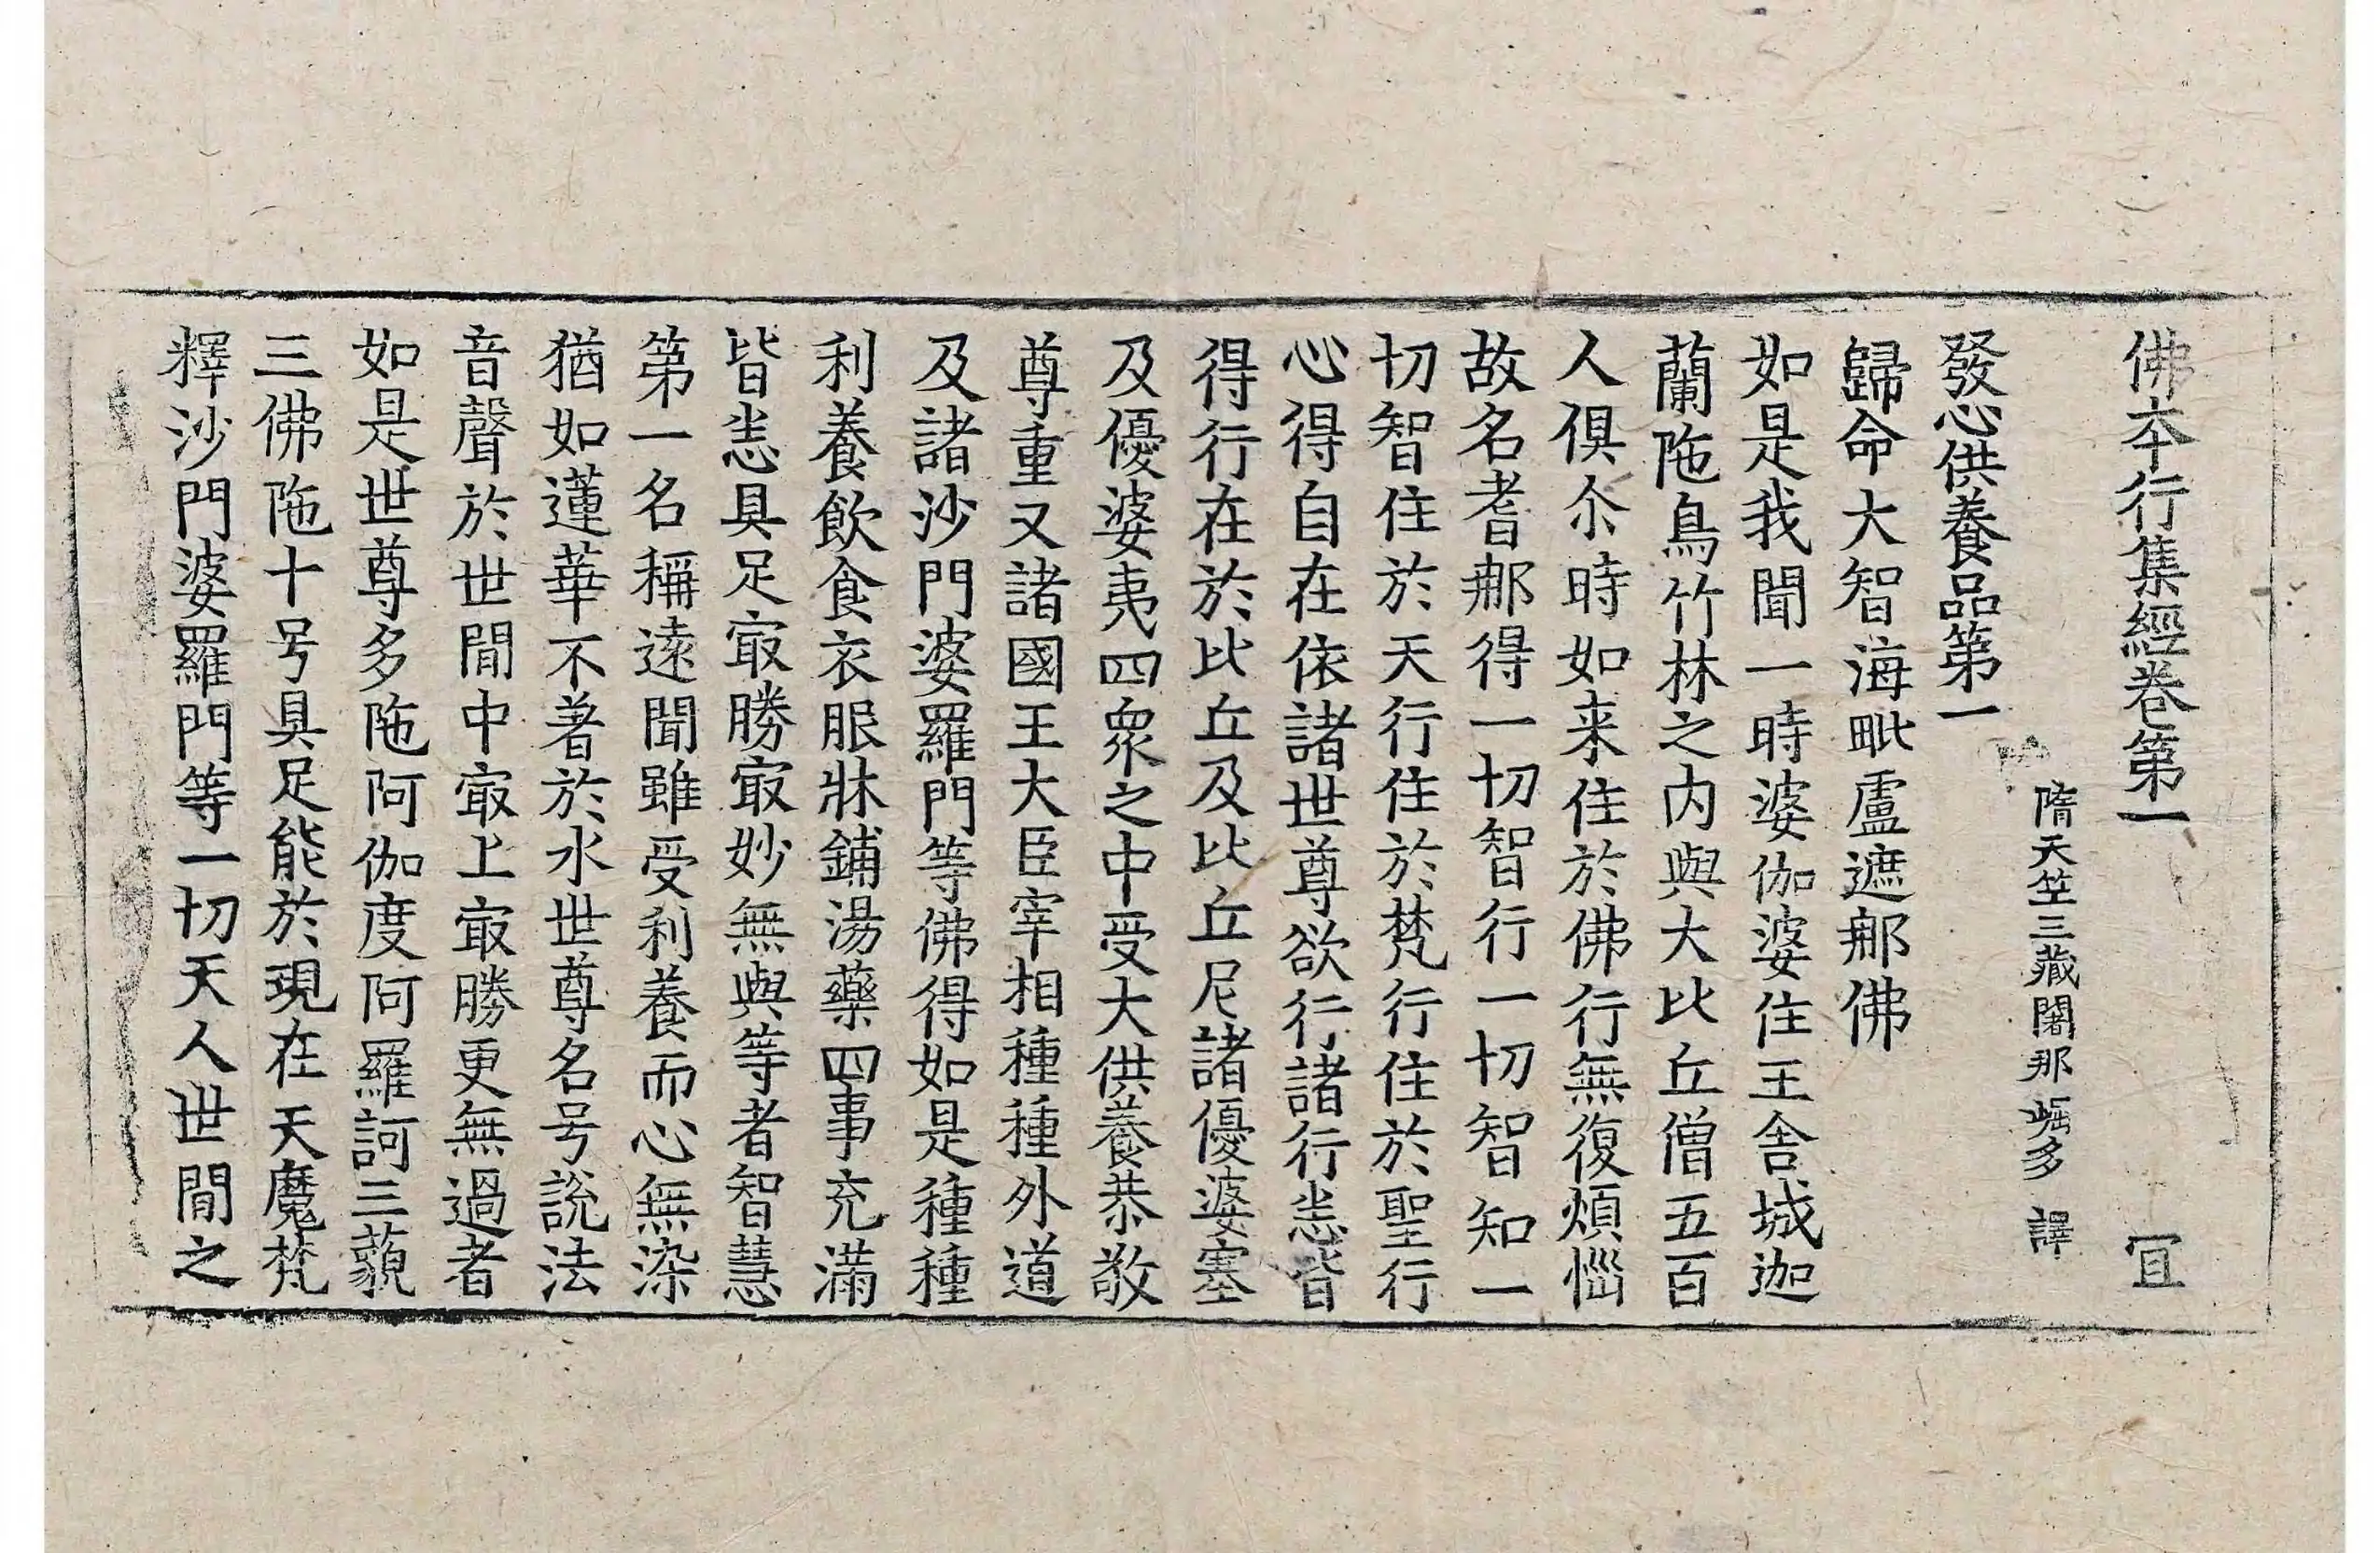 佛本行集經卷第一 冝
隋天竺三藏闍那崛多 譯
發心供養品第一
歸命大智海毗盧遮那佛
如是我聞一時婆伽婆住王舍城迦
蘭陁鳥竹林之內與大比丘僧五百
人俱尒時如来住於佛行無復煩惱
故名耆那得一切智行一切智知一
切智住於天行住於梵行住於聖行
心得自在依諸世尊欲行諸行悉皆
得行在於比丘及比丘尼諸優婆塞
及優婆夷四衆之中受大供養恭敬
尊重又諸國王大臣宰相種種外道
及諸沙門婆羅門等佛得如是種種
利養飲食衣服牀鋪湯藥四事充滿
皆悉具足㝡勝㝡妙無與等者智慧
第一名稱遠聞雖受利養而心無染
猶如蓮華不著於水世尊名号說法
音聲於世間中㝡上㝡勝更無過者
如是世尊多陁阿伽度阿羅訶三藐
三佛陁十号具足能於現在天魔梵
釋沙門婆羅門等一切天人世間之